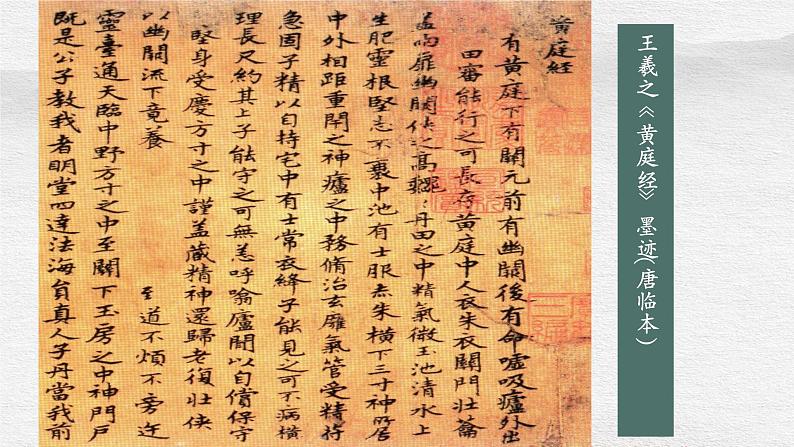 王羲之《黄庭经》墨迹(唐临本)
黄庭經
有黄庭下有關元前有幽闕後有命噓吸廬外出
田審能行之可長存黄庭中人衣朱衣關門壮蘥
盖兩扉幽闕俠之高巍丹田之中精氣微玉池清水上
生肥靈根堅志不衰中池有士服赤朱横下三寸神所居
中外相距重閇之神廬之中務脩治玄廱氣管受精符
急固子精以自持宅中有士常衣絳子能見之可不病横
理長尺約其上子能守之可無恙呼噏廬間以自償保守
堅身受慶方寸之中謹盖藏精神還歸老復壮俠
以幽闕流下竟養 至道不煩不旁迕
靈臺通天臨中野方寸之中至關下玉房之中神門戶
既是公子教我者明堂四達法海貟真人子丹當我前